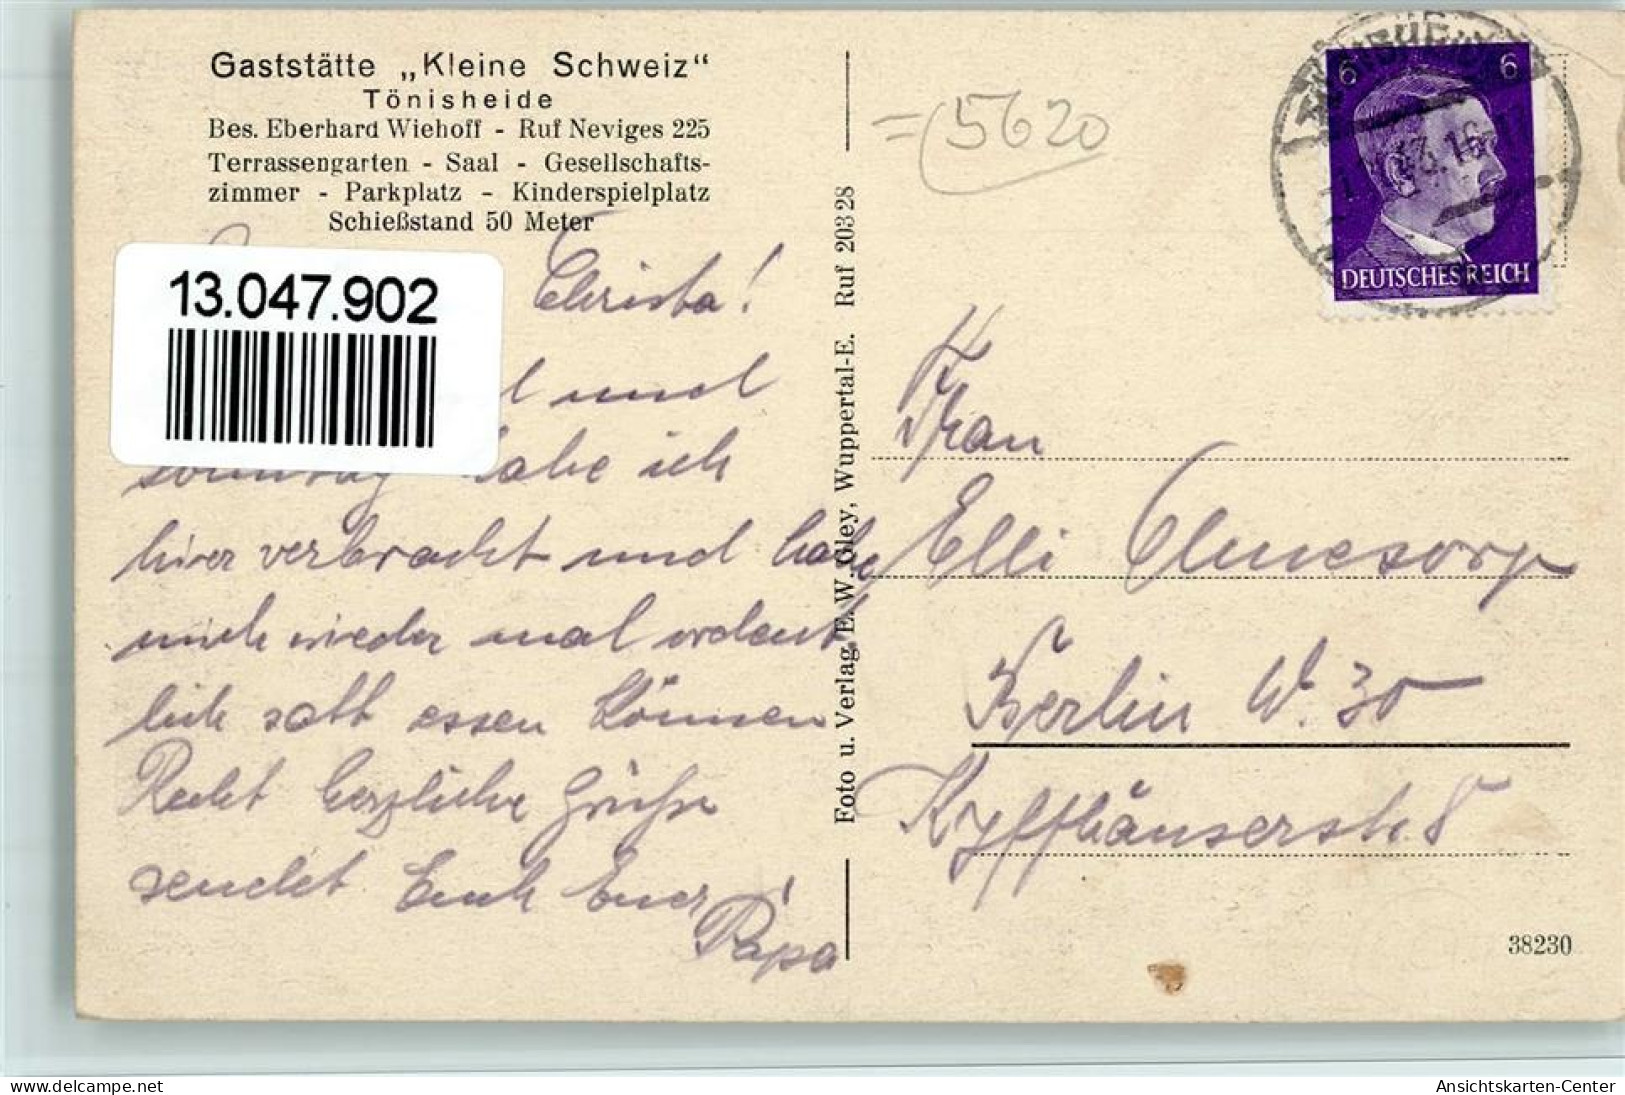 Gaststätte „Kleine Schweiz“
Tönisheide
Bes. Eberhard Wiehoff - Ruf Neviges 225
Terrassengarten - Saal - Gesellschafts-
zimmer - Parkplatz - Kinderspielplatz
Schießstand 50 Meter
13.047.902
Christa!
und
sonntag habe ich
hier verbracht und habe
mich wieder mal ordent
lich satt essen können
Recht herzliche Grüße
sendet Euch Euer
Papa
Foto u. Verlag E. W. Gley, Wuppertal-E. Ruf 20328
= 5620
6 6
16
DEUTSCHES REICH
Frau
Elli
Berlin W. 30
Kyffhäuserstr. 8
38230
www.delcampe.net
Ansichtskarten-Center